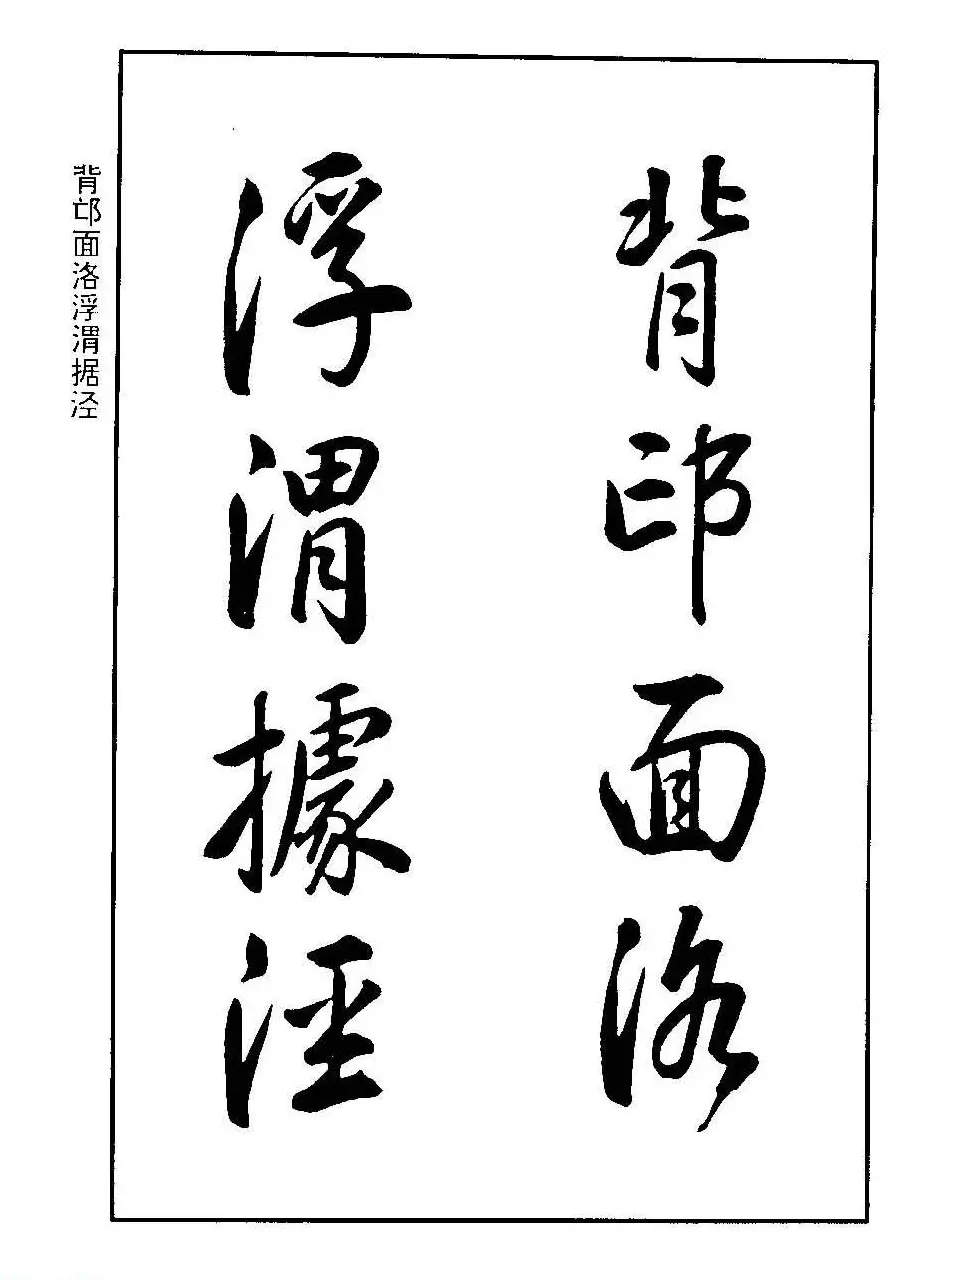 背邙面洛
浮渭據涇
背邙面洛浮渭据泾